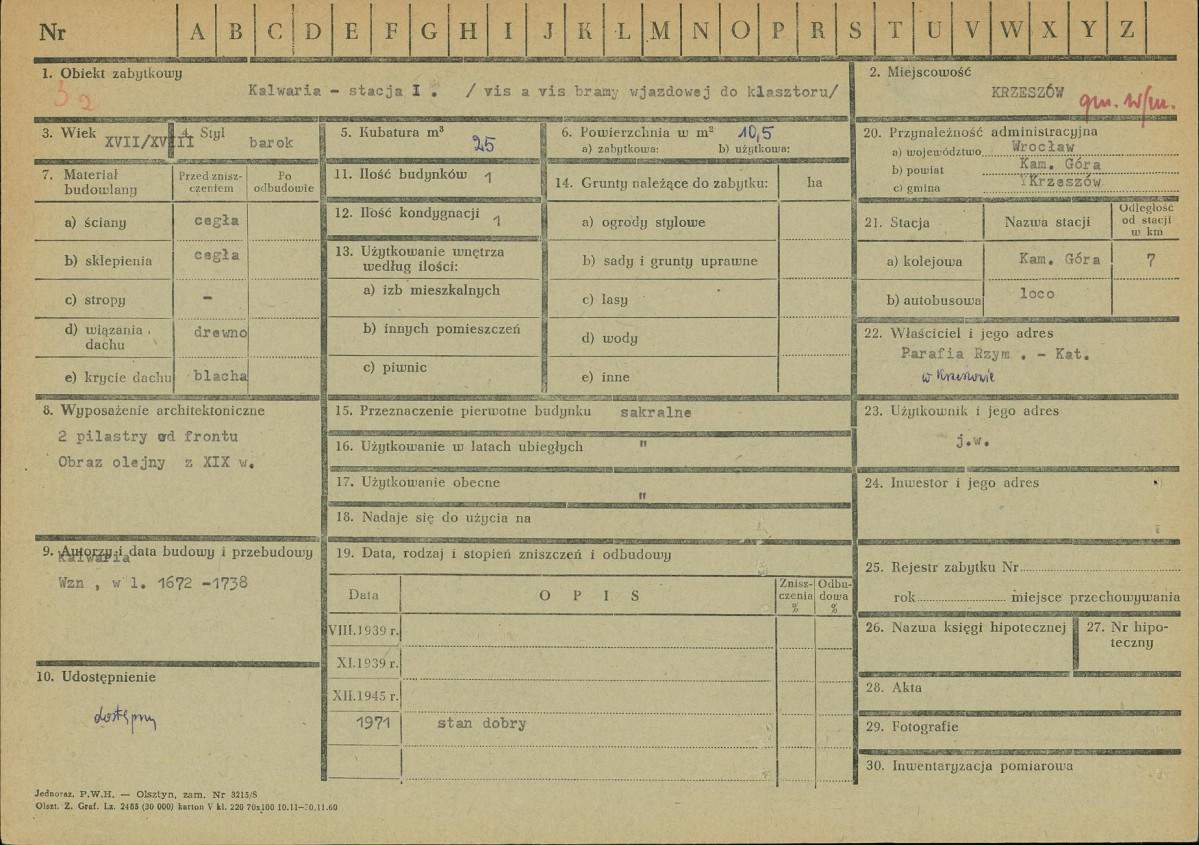 Nr A B C D E F G H I J K L M N O P R S T U V W X Y Z
1. Obiekt zabytkowy
32
Kalwaria - stacja I . / vis a vis bramy wjazdowej do klasztoru/
2. Miejscowość
KRZESZÓW
gm. w/m.
3. Wiek
XVII/XVIII
4. Styl
barok
5. Kubatura m³
25
6. Powierzchnia w m² 10,5
a) zabytkowa: b) użytkowa:
7. Materiał budowlany
Przed zniszczeniem
Po odbudowie
a) ściany cegła
b) sklepienia cegła
c) stropy -
d) wiązania dachu drewno
e) krycie dachu blacha
8. Wyposażenie architektoniczne
2 pilastry od frontu
Obraz olejny z XIX w.
9. Autorzy i data budowy i przebudowy
Kalwaria
Wzn , w l. 1672 -1738
10. Udostępnienie
dostępny
11. Ilość budynków 1
12. Ilość kondygnacji 1
13. Użytkowanie wnętrza
według ilości:
a) izb mieszkalnych
b) innych pomieszczeń
c) piwnic
14. Grunty należące do zabytku: ha
a) ogrody stylowe
b) sady i grunty uprawne
c) lasy
d) wody
e) inne
15. Przeznaczenie pierwotne budynku sakralne
16. Użytkowanie w latach ubiegłych "
17. Użytkowanie obecne "
18. Nadaje się do użycia na
19. Data, rodzaj i stopień zniszczeń i odbudowy
Data O P I S Zniszczenia % Odbudowa %
VIII.1939 r.
XI.1939 r.
XII.1945 r.
1971 stan dobry
20. Przynależność administracyjna
a) województwo Wrocław
b) powiat Kam. Góra
c) gmina Krzeszów
21. Stacja Nazwa stacji Odległość od stacji w km
a) kolejowa Kam. Góra 7
b) autobusowa loco
22. Właściciel i jego adres
Parafia Rzym . - Kat.
w Krzeszowie
23. Użytkownik i jego adres
j.w.
24. Inwestor i jego adres
25. Rejestr zabytku Nr
rok miejsce przechowywania
26. Nazwa księgi hipotecznej
27. Nr hipoteczny
28. Akta
29. Fotografie
30. Inwentaryzacja pomiarowa
Jednoraz. P.W.H. — Olsztyn, zam. Nr 3215/S
Olszt. Z. Graf. Lz. 2485 (30 000) karton V kl. 220 70x100 10.11—30.11.60